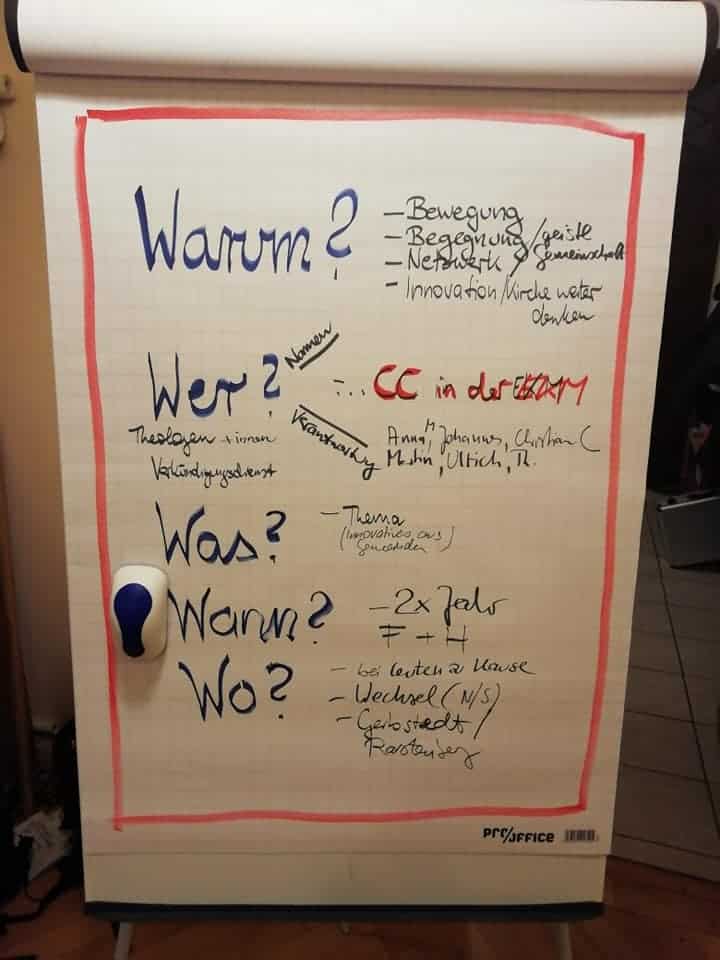 Warum?
- Bewegung
- Begegnung / geistl
- Netzwerk / Gemeinschaft
- Innovation / Kirche weiter
denken
Wer?
Namen
... CC in der EKM
Theologen + innen
Verkündigungsdienst
Verantwortung
Anna M, Johannes, Christian C
Martin, Ulrich, Th.
Was?
- Thema
(Innovatives aus
Gemeinden)
Wann?
- 2x Jahr
F + H
Wo?
- bei Leuten z Hause
- Wechsel (N/S)
- Gerbstedt /
Rastenberg
pro/office